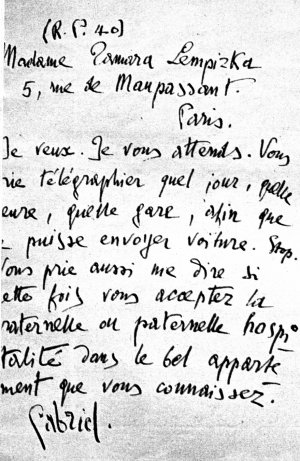 (R.P. 40)
Madame Tamara Lempizka
5, rue de Maupassant.
Paris.
Je veux. Je vous attends. Vous
rie télégraphier quel jour, quelle
eure, quelle gare, afin que
puisse envoyer voiture. Stop.
Vous prie aussi me dire si
ette fois vous acceptez la
maternelle ou paternelle hospi
talité dans le bel apparte
ment que vous connaissez.
Gabriel.